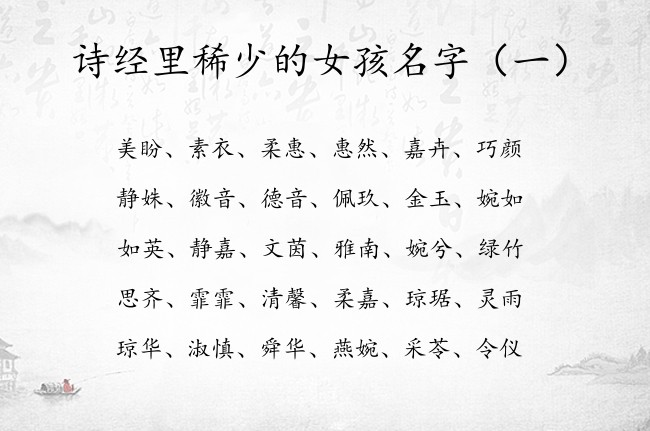 诗经里稀少的女孩名字（一）
美盼、素衣、柔惠、惠然、嘉卉、巧颜
静姝、徽音、德音、佩玖、金玉、婉如
如英、静嘉、文茵、雅南、婉兮、绿竹
思齐、霏霏、清馨、柔嘉、琼琚、灵雨
琼华、淑慎、舜华、燕婉、采苓、令仪